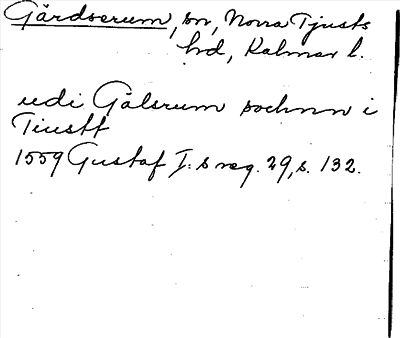 Gärdserum, sn, Norra Tjusts
hd, Kalmar l.
udi Gålsrum sochnn i
Tiustt
1559 Gustaf I:s reg. 29, s. 132.